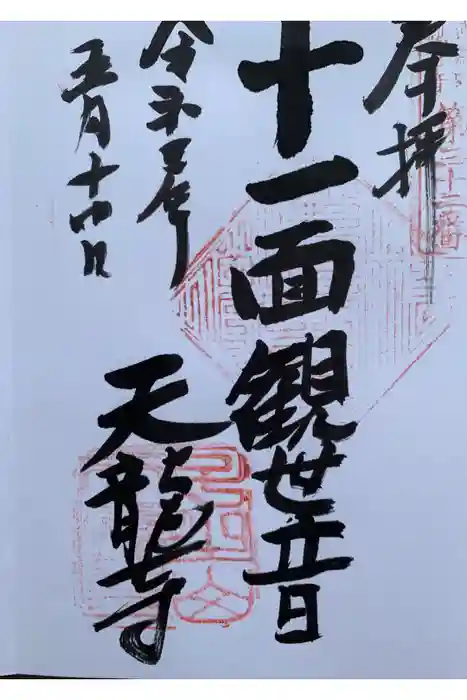 奉拝
第三十二番
十一面観世音
天龍寺
令和五年
五月十四日